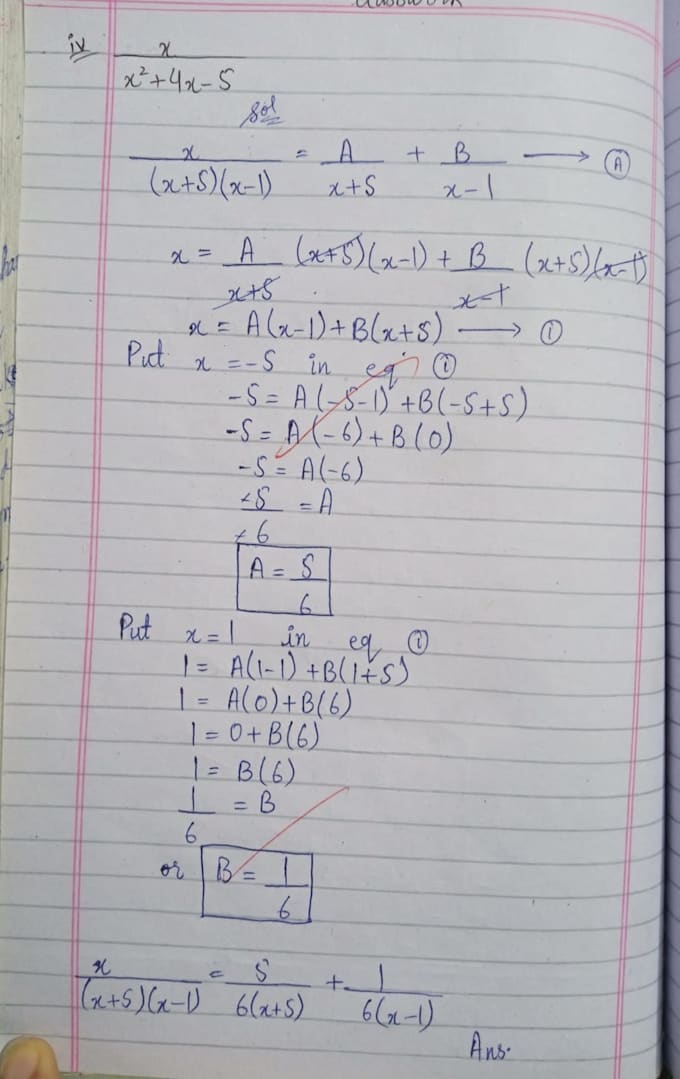 iv x / (x² + 4x - 5)
Sol
x / ((x+5)(x-1)) = A / (x+5) + B / (x-1) → Ⓐ
x = A / (x+5) (x+5)(x-1) + B / (x-1) (x+5)(x-1)
x = A(x-1) + B(x+5) → ①
Put x = -5 in eq ①
-5 = A(-5-1) + B(-5+5)
-5 = A(-6) + B(0)
-5 = A(-6)
-5 / -6 = A
A = 5 / 6
Put x = 1 in eq ①
1 = A(1-1) + B(1+5)
1 = A(0) + B(6)
1 = 0 + B(6)
1 = B(6)
1 / 6 = B
or B = 1 / 6
x / ((x+5)(x-1)) = 5 / (6(x+5)) + 1 / (6(x-1))
Ans.